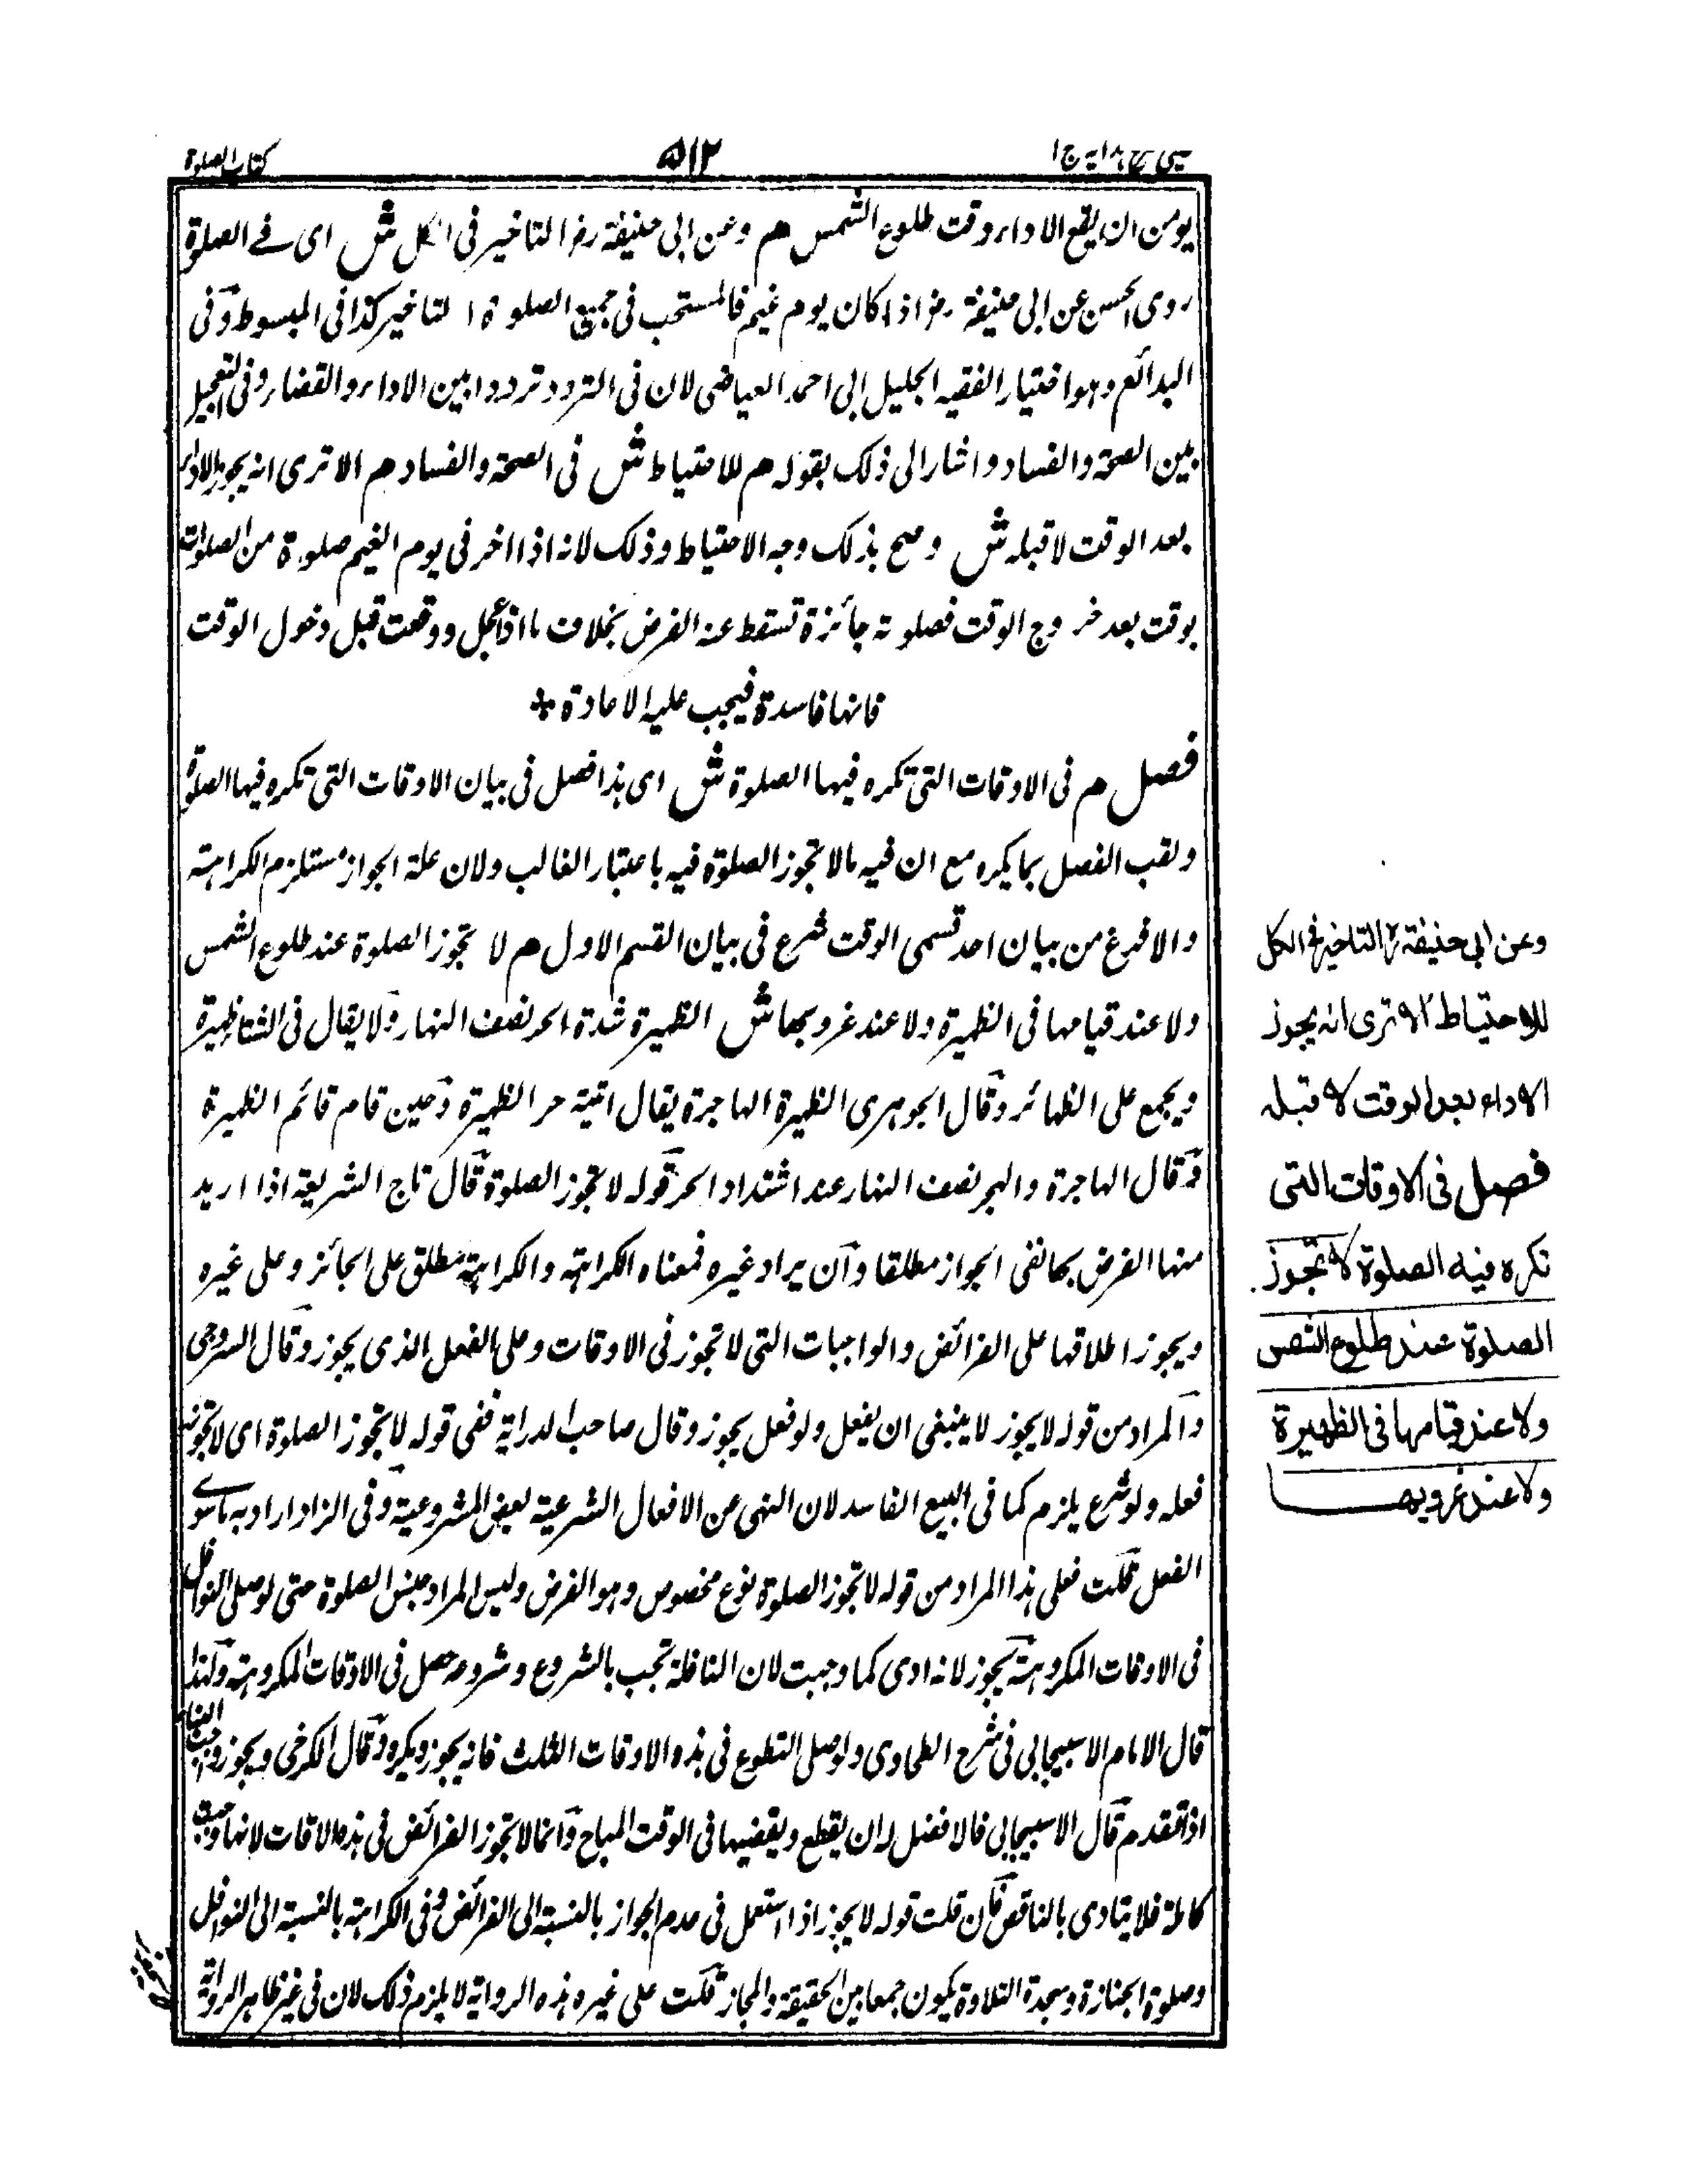 عینی شرح ہدایہ ج ا
۵۱۲
کتاب الصلوة
یومن ان یقع الاداء وقت طلوع الشمس م وعن ابی حنیفة رح التاخیر فی الکل ش ای فے الصلوة
روی الحسن عن ابی حنیفة رح اذا کان یوم غیم فالمستحب فی جمیع الصلوة التاخیر کذا فی المبسوط وفی
البدائع وہو اختیار الفقیہ الجلیل ابی احمد العیاضی لان فی التردد ترددا بین الاداء والقضاء وفی التعجیل
بین الصحة والفساد واشار الی ذلک بقولہ م للاحتیاط ش فی الصحة والفساد م الا تری انہ یجوز الاداء
بعد الوقت لا قبلہ ش وصح بذلک وجہ الاحتیاط وذلک لانہ اذا اخر فی یوم الغیم صلوة من الصلوات
بوقت بعد خروج الوقت فصلوتہ جائزة تسقط عنہ الفرض بخلاف ما اذا عجل ووقعت قبل دخول الوقت
فانہا فاسدة فیجب علیہ الاعادة ٭
فصل م فی الاوقات التی تکرہ فیہا الصلوة ش ای ہذا فصل فی بیان الاوقات التی تکرہ فیہا الصلوة
ولقب الفصل بما یکرہ مع ان فیہ مالا تجوز الصلوة فیہ باعتبار الغالب ولان علة الجواز مستلزم الکراہتہ
والا فرغ من بیان احد قسمی الوقت شرع فی بیان القسم الاول م لا تجوز الصلوة عند طلوع الشمس
ولا عند قیامہا فی الظہیرة ولا عند غروبہا ش الظہیرة شدة الحر نصف النہار ولا یقال فی الشتا ظہیرة
ویجمع علی الظہائر وقال الجوہری الظہیرة الہاجرة یقال اتیتہ حر الظہیرة وحین قام قائم الظہیرة
وقال الہاجرة والہجر نصف النہار عند اشتداد الحر قولہ لا تجوز الصلوة قال تاج الشریعة اذا ارید
منہا الفرض بہا نفی الجواز مطلقا وان یراد غیرہ فمعناہ الکراہتہ والکراہیة مطلق علی الجائز وعلی غیرہ
ویجوز اطلاقہا علی الفرائض والواجبات التی لا تجوز فی الاوقات وعلی الفعل الذی یجوز وقال السروجی
والمراد من قولہ لا یجوز لا ینبغی ان یفعل ولو فعل یجوز وقال صاحب الدرایة ففی قولہ لا تجوز الصلوة ای لا تجوز
فعلہ ولو شرع یلزم کما فی البیع الفاسد لان النہی عن الافعال الشرعیة بعض المشروعیة وفی الزاد اراد بہ ما سوے
الفعل قلت فعلی ہذا المراد من قولہ لا تجوز الصلوة نوع مخصوص وہو الفرض ولیس المراد جنس الصلوة حتی لو صلی النوافل
فی الاوقات المکروہتہ یجوز لانہ ادی کما وجبت لان النافلة تجب بالشروع وشروعہ حصل فی الاوقات المکروہتہ ولہذا
قال الامام الاسبیجابی فی شرح الطحاوی ولو صلی التطوع فی ہذہ الاوقات الثلث فانہ یجوز ویکرہ وقال الکرخی ویجوز
اذا تقدم قال الاسبیجابی فالافضل لہ ان یقطع ویقضیہا فی الوقت المباح وانما لا تجوز الفرائض فی ہذہ الاقات لانہا وجبت
کاملة فلا یتادی بالناقص فان قلت قولہ لا یجوز اذا استعمل فی عدم الجواز بالنسبة الی الفرائض وفی الکراہتہ بالنسبة الی النوافل
وصلوة الجنازة وسجدة التلاوة یکون جمعا بین الحقیقة والمجاز قلت علی غیرہ ہذہ الروایة لا یلزم ذلک لان فی غیر ظاہر الروایة
وعن ابی حنیفة رح التاخیر فی الکل
للاحتیاط الا تری انہ یجوز
الاداء بعد الوقت لا قبلہ
فصل فی الاوقات التی
تکرہ فیہ الصلوة لا تجوز
الصلوة عند طلوع الشمس
ولا عند قیامہا فی الظہیرة
ولا عند غروبہا